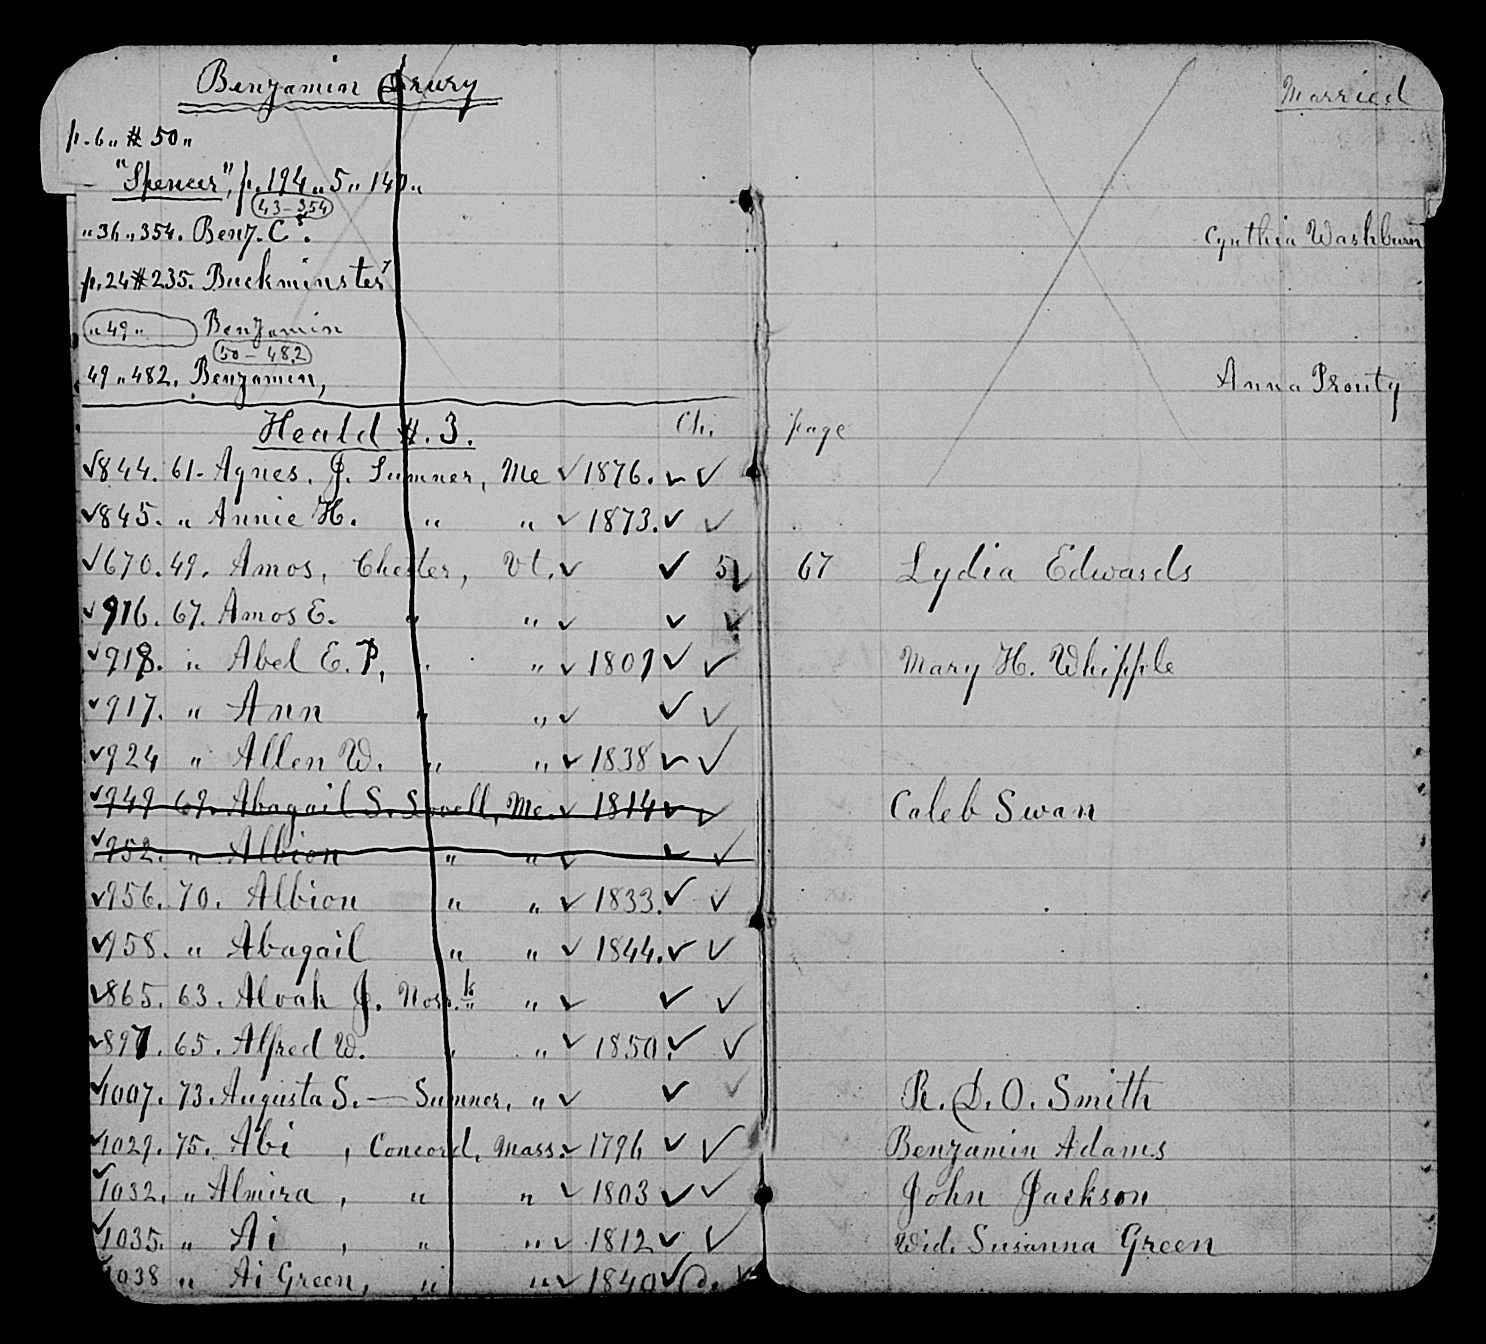 Benjamin Drury Married
p. 6 „ # 50 „
"Spencer", p. 194 „ 5 „ 140 „
43 – 354
„ 36 „ 354. Benj. C⁸. Cynthia Washburn
p. 24 # 235. Buckminster⁷
„ 49 „ Benjamin
50 – 482
49 „ 482. Benjamin, Anna Prouty
Heald #. 3. Ch. page
✓844. 61 - Agnes. J. Sumner, Me ✓ 1876. ✓ ✓
✓845. „ Annie H. „ „ ✓ 1873. ✓ ✓
✓670. 49. Amos, Chester, Vt. ✓ ✓ 5 ✓ 67 Lydia Edwards
✓916. 67. Amos E. „ „ ✓ ✓ ✓
✓918. „ Abel E. P, „ „ ✓ 1809 ✓ ✓ Mary H. Whipple
✓917. „ Ann „ „ ✓ ✓ ✓
✓924 „ Allen W. „ „ ✓ 1838 ✓ ✓
✓949 69. Abagail S. Lovell, Me. ✓ 1814 ✓ ✓ Caleb Swan
✓952. „ Albion „ „ ✓ ✓ ✓
✓956. 70. Albion „ „ ✓ 1833. ✓ ✓
✓958. „ Abagail „ „ ✓ 1844. ✓ ✓
✓865. 63. Alvah J. Nor.k „ ✓ ✓ ✓
✓897. 65. Alfred W. „ „ ✓ 1850. ✓ ✓
✓1007. 73. Augusta S. — Sumner, „ ✓ ✓ ✓ R. D. O. Smith
✓1029. 75. Abi , Concord, Mass. ✓ 1796 ✓ ✓ Benjamin Adams
✓1032. „ Almira , „ „ ✓ 1803 ✓ ✓ John Jackson
✓1035. „ Ai , „ „ ✓ 1812 ✓ ✓ Wid. Susanna Green
✓1038 „ Ai Green, „ „ ✓ 1840 ✓ d. ✓